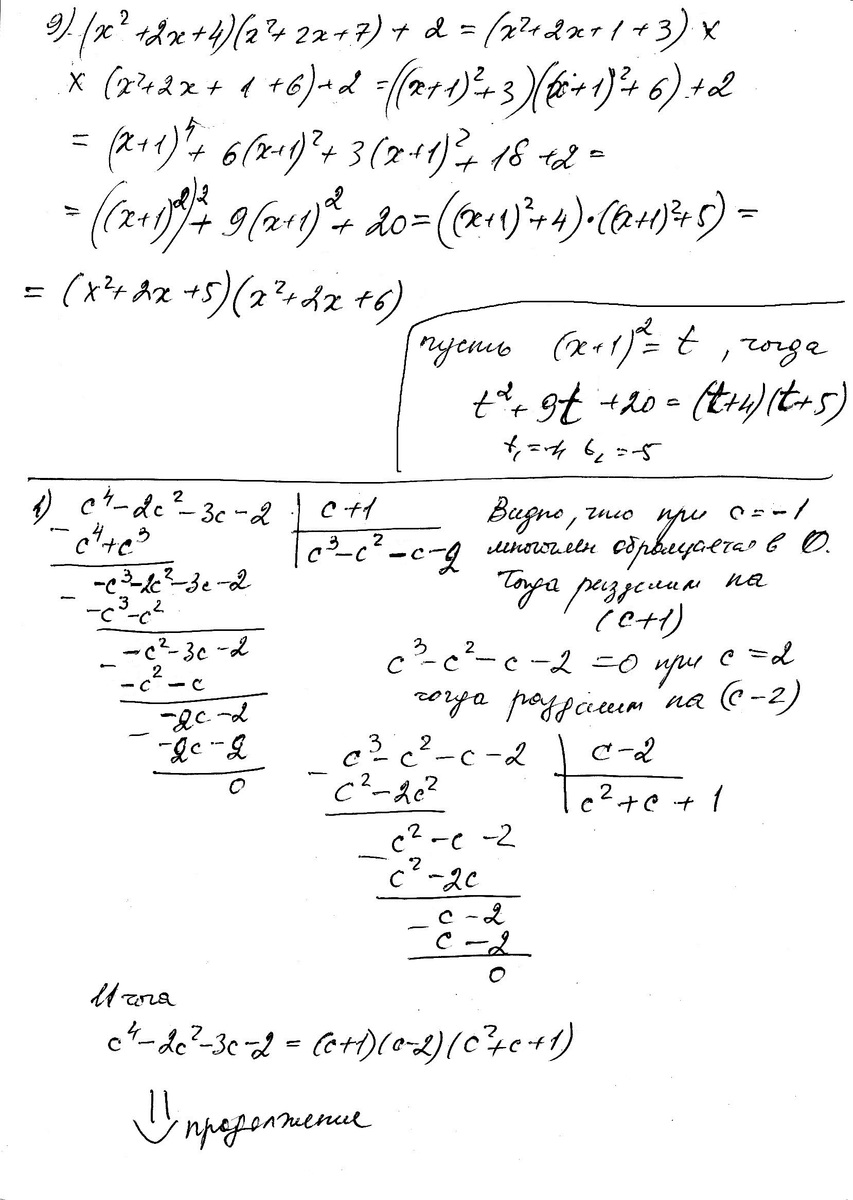 9) (x²+2x+4)(x²+2x+7)+2=(x²+2x+1+3)×
×(x²+2x+1+6)+2=((x+1)²+3)((x+1)²+6)+2
=(x+1)⁴+6(x+1)²+3(x+1)²+18+2=
=((x+1)²)²+9(x+1)²+20=((x+1)²+4)·((x+1)²+5)=
=(x²+2x+5)(x²+2x+6)
пусть (x+1)²=t, тогда
t²+9t+20=(t+4)(t+5)
t₁=-4 t₂=-5
1) c⁴-2c²-3c-2 | c+1
- c⁴+c³
c³-c²-c-2
- -c³-2c²-3c-2
-c³-c²
- -c²-3c-2
-c²-c
- -2c-2
-2c-2
0
Видно, что при c=-1
многочлен обращается в 0.
Тогда разделим на
(c+1)
c³-c²-c-2=0 при c=2
тогда разделим на (c-2)
- c³-c²-c-2 | c-2
c²-2c²
c²+c+1
- c²-c-2
c²-2c
- c-2
c-2
0
Итога
c⁴-2c²-3c-2=(c+1)(c-2)(c²+c+1)
⇓ продолжение